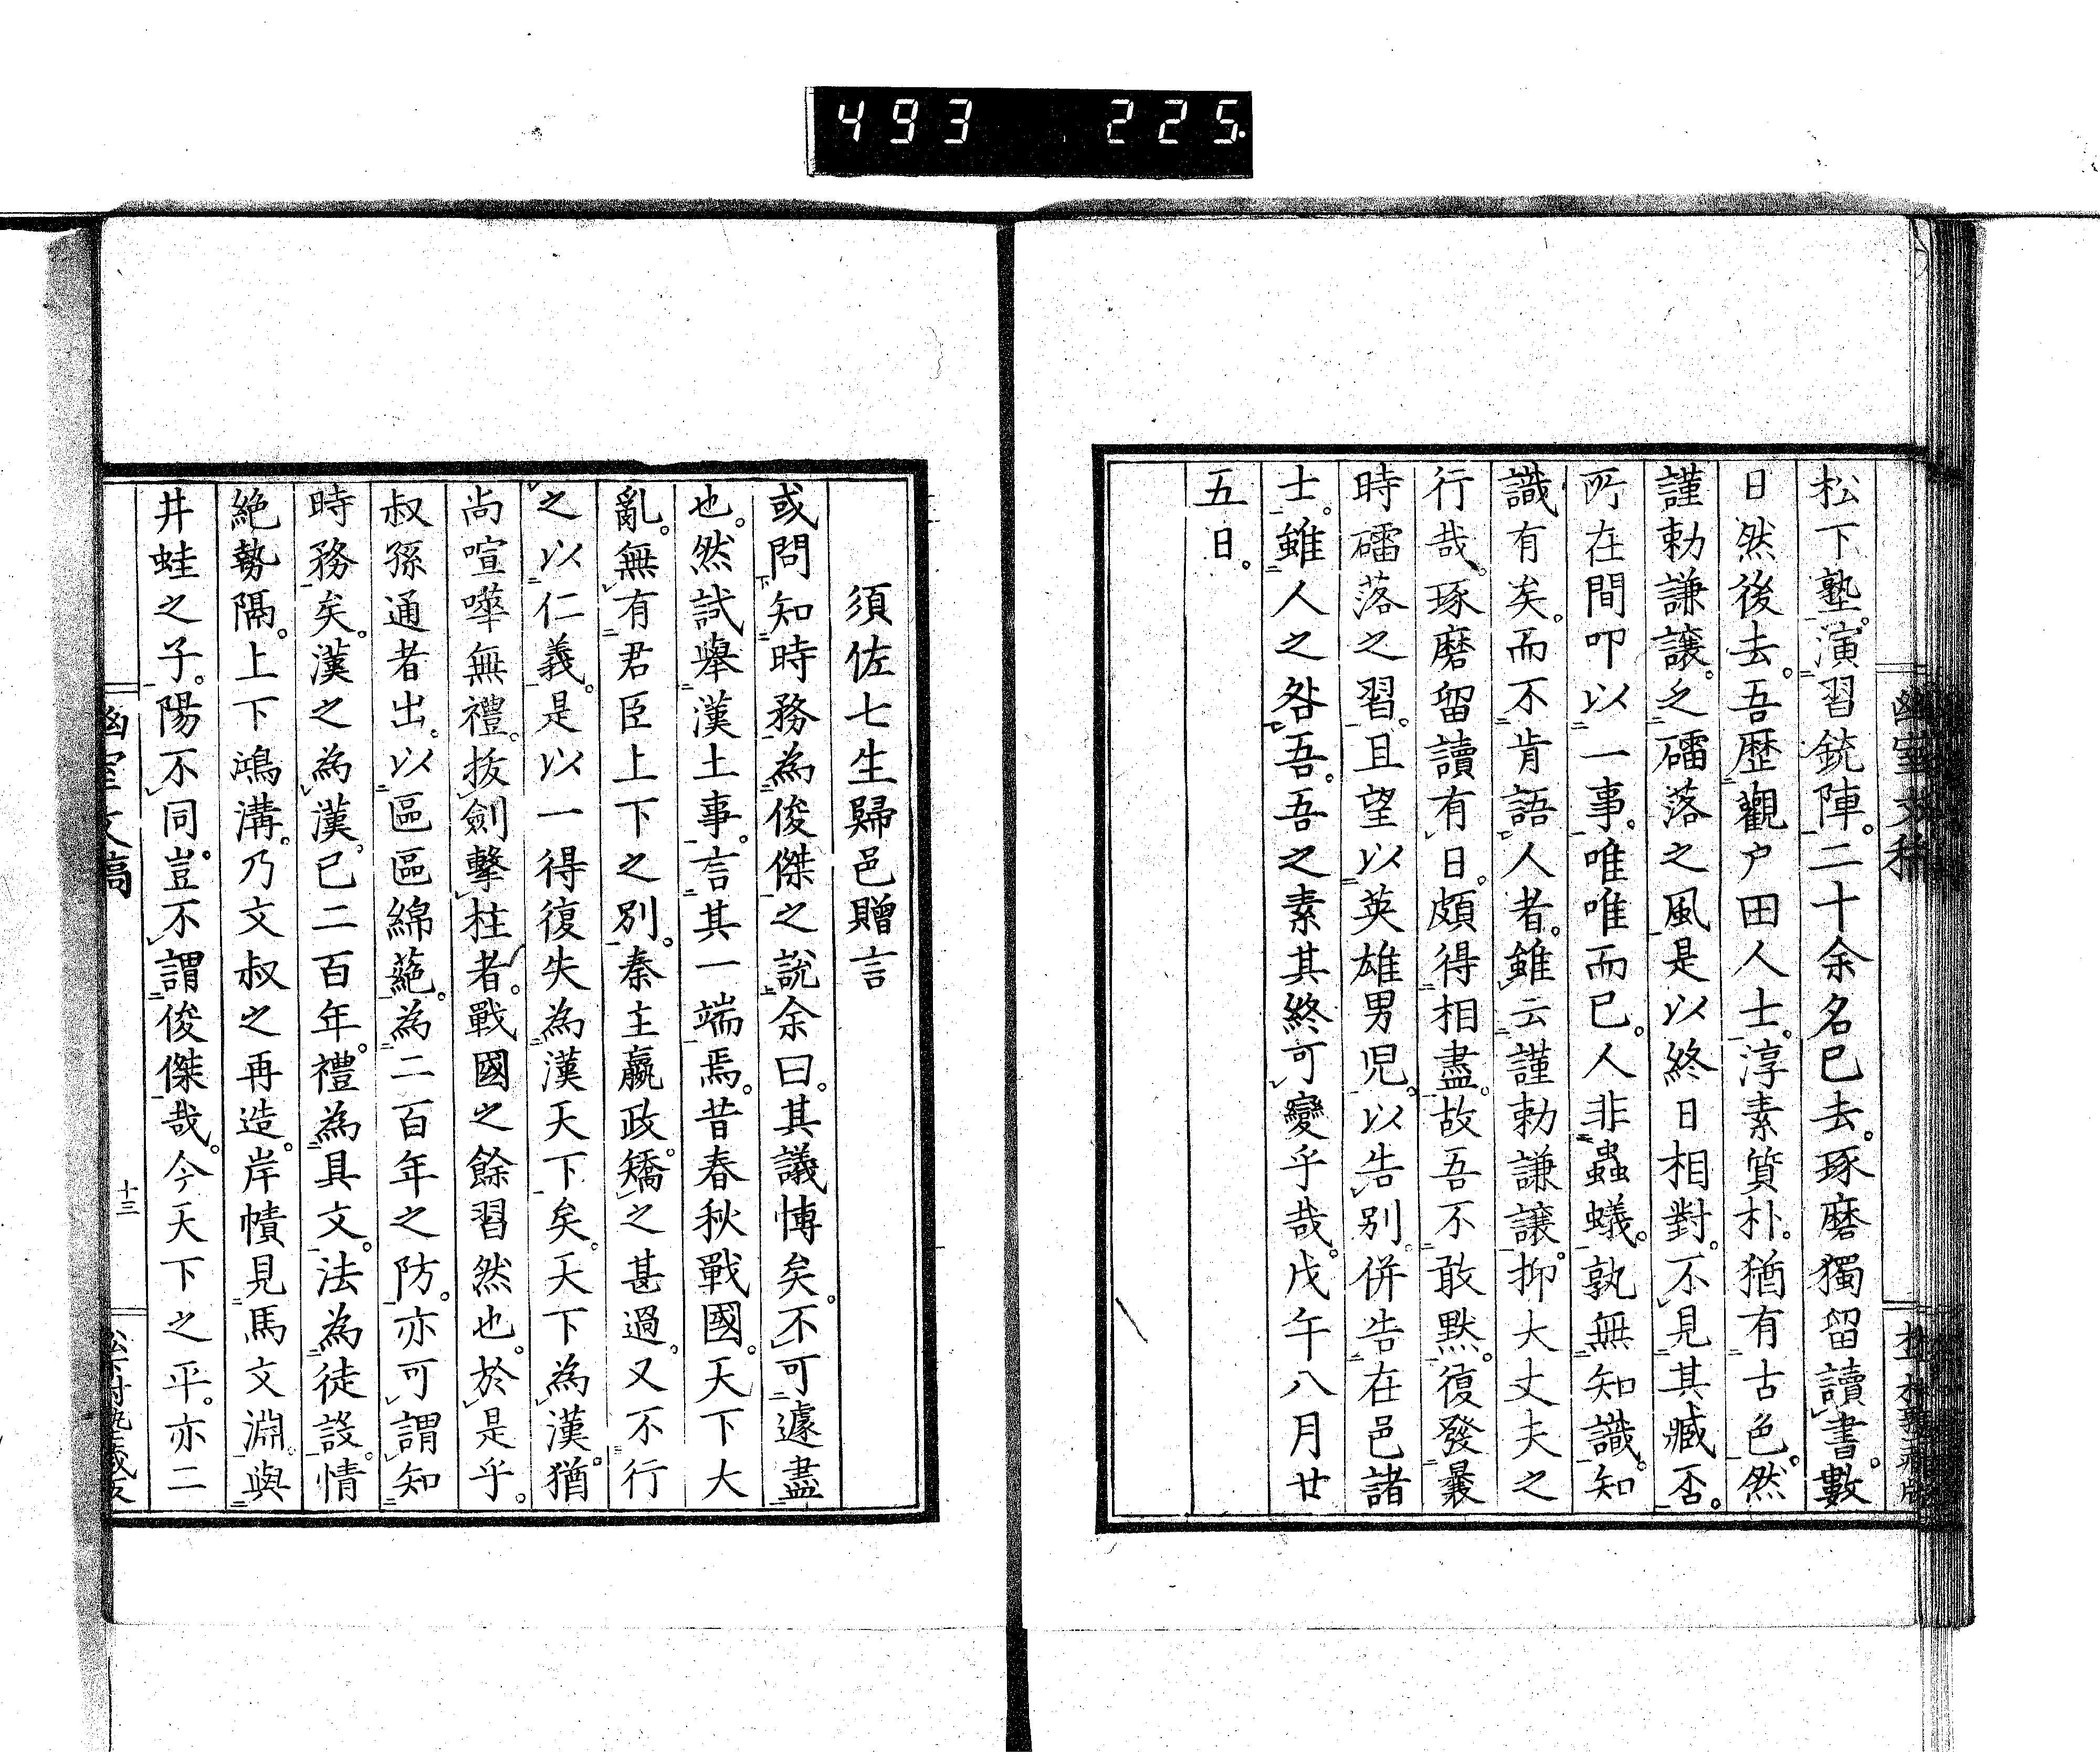 493 225
幽室文稿
松下塾。演習銃陣。二十余名已去。琢磨獨留讀書。數
日然後去。吾歴觀户田人士。淳素質朴。猶有古色。然
謹勅謙讓。乏礌落之風。是以終日相對。不見其臧否。
所在間叩以一事。唯唯而已。人非蟲蟻。孰無知識。知
識有矣。而不肯語人者。雖云謹勅謙讓。抑大丈夫之
行哉。琢磨留讀有日。頗得相盡。故吾不敢默。復發曩
時礌落之習。且望以英雄男児。以告別。併告在邑諸
士。雖人之咎吾。吾之素其終可變乎哉。戊午八月廿
五日。
須佐七生歸邑贈言
或問知時務為俊傑之說余曰。其議博矣。不可遽盡
也。然試舉漢土事。言其一端焉。昔春秋戰國。天下大
亂。無有君臣上下之別。秦主嬴政。矯之甚過。又不行
之以仁義。是以一得復失為漢天下矣。天下為漢。猶
尚喧嘩無禮。抜劍擊柱者。戰國之餘習然也。於是乎。
叔孫通者出。以區區綿蕝。為二百年之防。亦可謂知
時務矣。漢之為漢。已二百年。禮為具文。法為徒設。情
絶勢隔。上下鴻溝。乃文叔之再造。岸幘見馬文淵。與
井蛙之子。陽不同。豈不謂俊傑哉。今天下之平。亦二
幽室文稿
十三